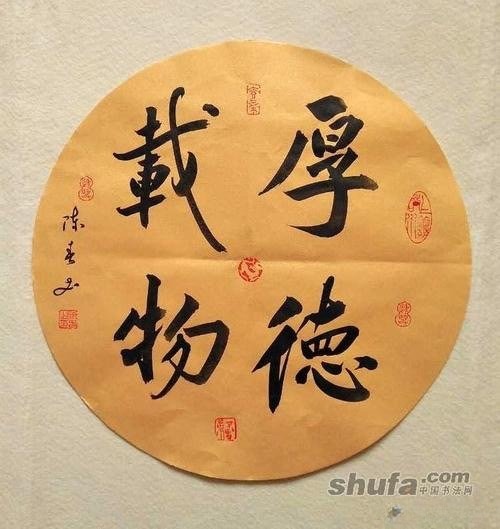 厚德
載物
陈春
shufa.com
中国书法网